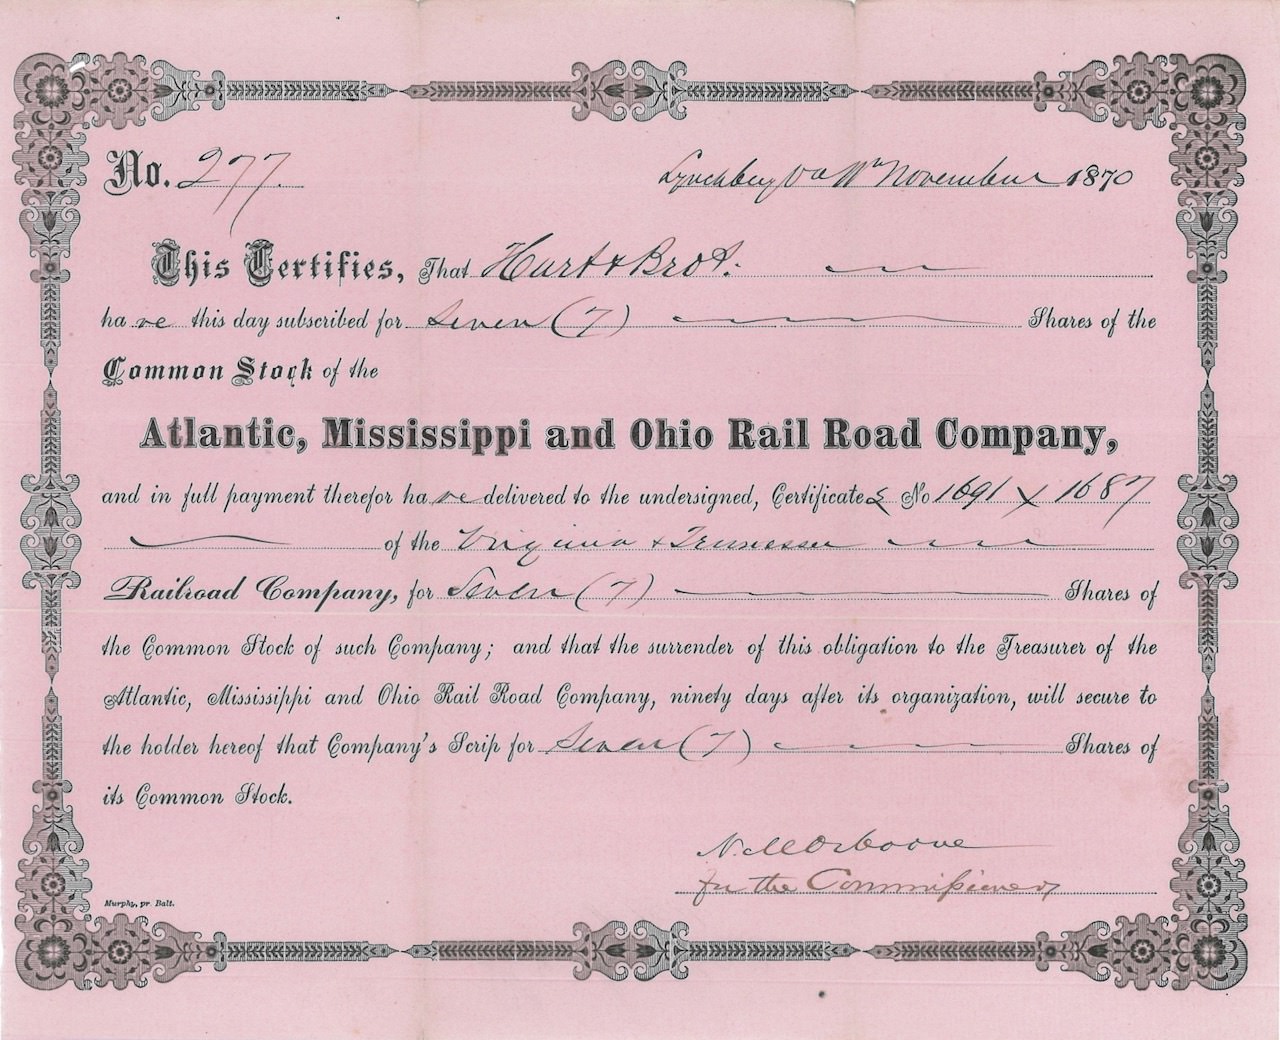 No. 277. Lynchburg Va 11th November 1870
This Certifies, That Hurt & Bro.
have this day subscribed for Seven (7) Shares of the
Common Stock of the
Atlantic, Mississippi and Ohio Rail Road Company,
and in full payment therefor have delivered to the undersigned, Certificates No 1691 & 1687
of the Virginia & Tennessee
Railroad Company, for Seven (7) Shares of
the Common Stock of such Company; and that the surrender of this obligation to the Treasurer of the
Atlantic, Mississippi and Ohio Rail Road Company, ninety days after its organization, will secure to
the holder hereof that Company's Scrip for Seven (7) Shares of
its Common Stock.
N. M. Osborne
for the Commissioners
Murphy, pr. Balt.